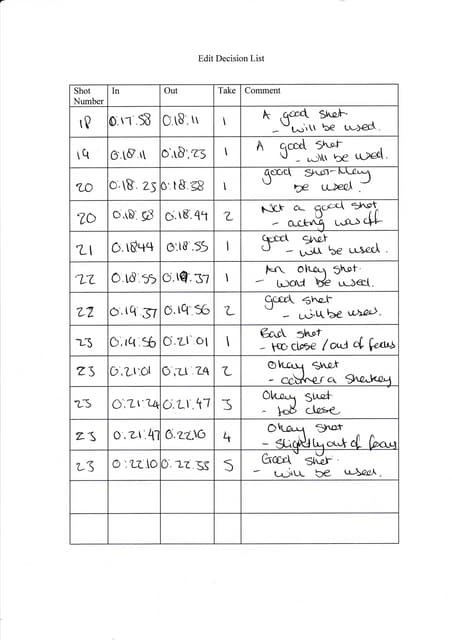 Edit Decision List
Shot Number In Out Take Comment
18 0.17.58 0.18.11 1 A good shot
- will be used.
19 0.18.11 0.18.23 1 A good shot
- will be used.
20 0.18.23 0.18.38 1 good shot-May
be used.
20 0.18.38 0.18.44 2 Not a good shot
- acting was off
21 0.1844 0.18.55 1 good shot
- will be used.
22 0.18.55 0.19.37 1 An okay shot.
- wont be used.
22 0.19.37 0.19.56 2 good shot
- will be used.
23 0.19.56 0.21.01 1 Bad shot
- too close / out of focus
23 0.21.01 0.21.24 2 Okay shot
- camera shakey
23 0.21.24 0.21.47 3 Okay shot
- too close
23 0.21.47 0.22.10 4 Okay shot
- Slightly out of focus
23 0.22.10 0.22.35 5 Good shot.
- will be used.